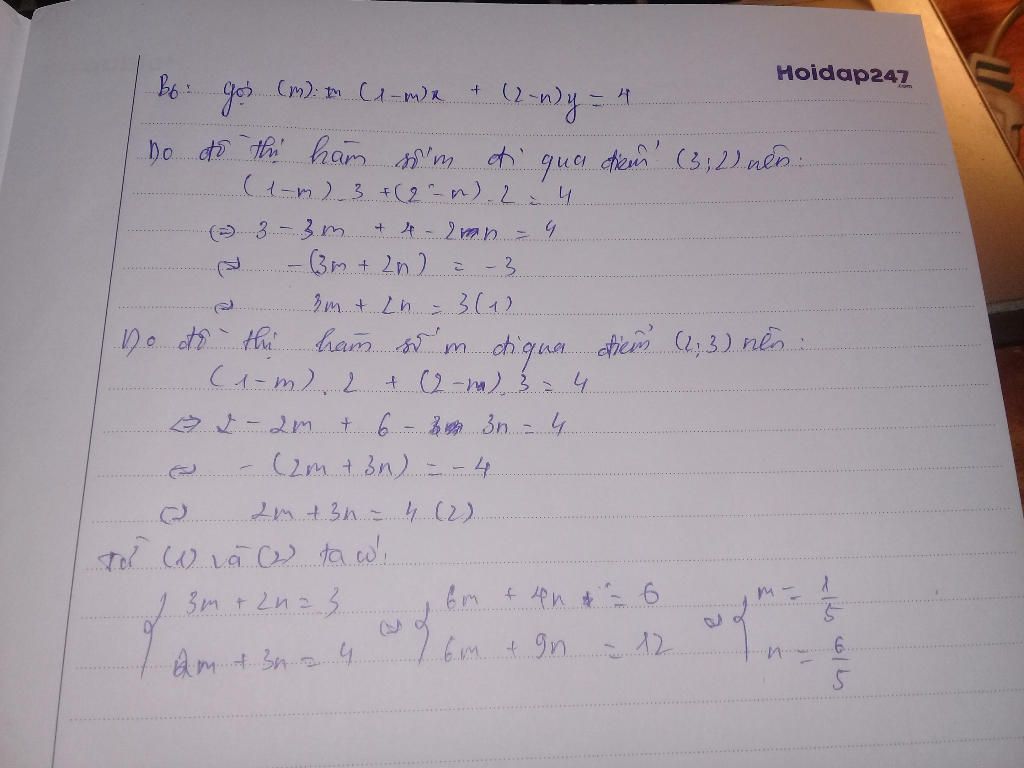 Hoidap247
.com
B6: gọi (m): (1-m)x + (2-n)y = 4
Do đồ thị hàm số m đi qua điểm (3;2) nên:
(1-m).3 + (2-n).2 = 4
⇔ 3 - 3m + 4 - 2n = 4
⇔ -(3m + 2n) = -3
⇔ 3m + 2n = 3 (1)
Do đồ thị hàm số m đi qua điểm (2;3) nên:
(1-m).2 + (2-n).3 = 4
⇔ 2 - 2m + 6 - 3n = 4
⇔ -(2m + 3n) = -4
⇔ 2m + 3n = 4 (2)
Từ (1) và (2) ta có:
{ 3m + 2n = 3 ⇔ { 6m + 4n = 6 ⇔ { m = 1/5
2m + 3n = 4 6m + 9n = 12 n = 6/5